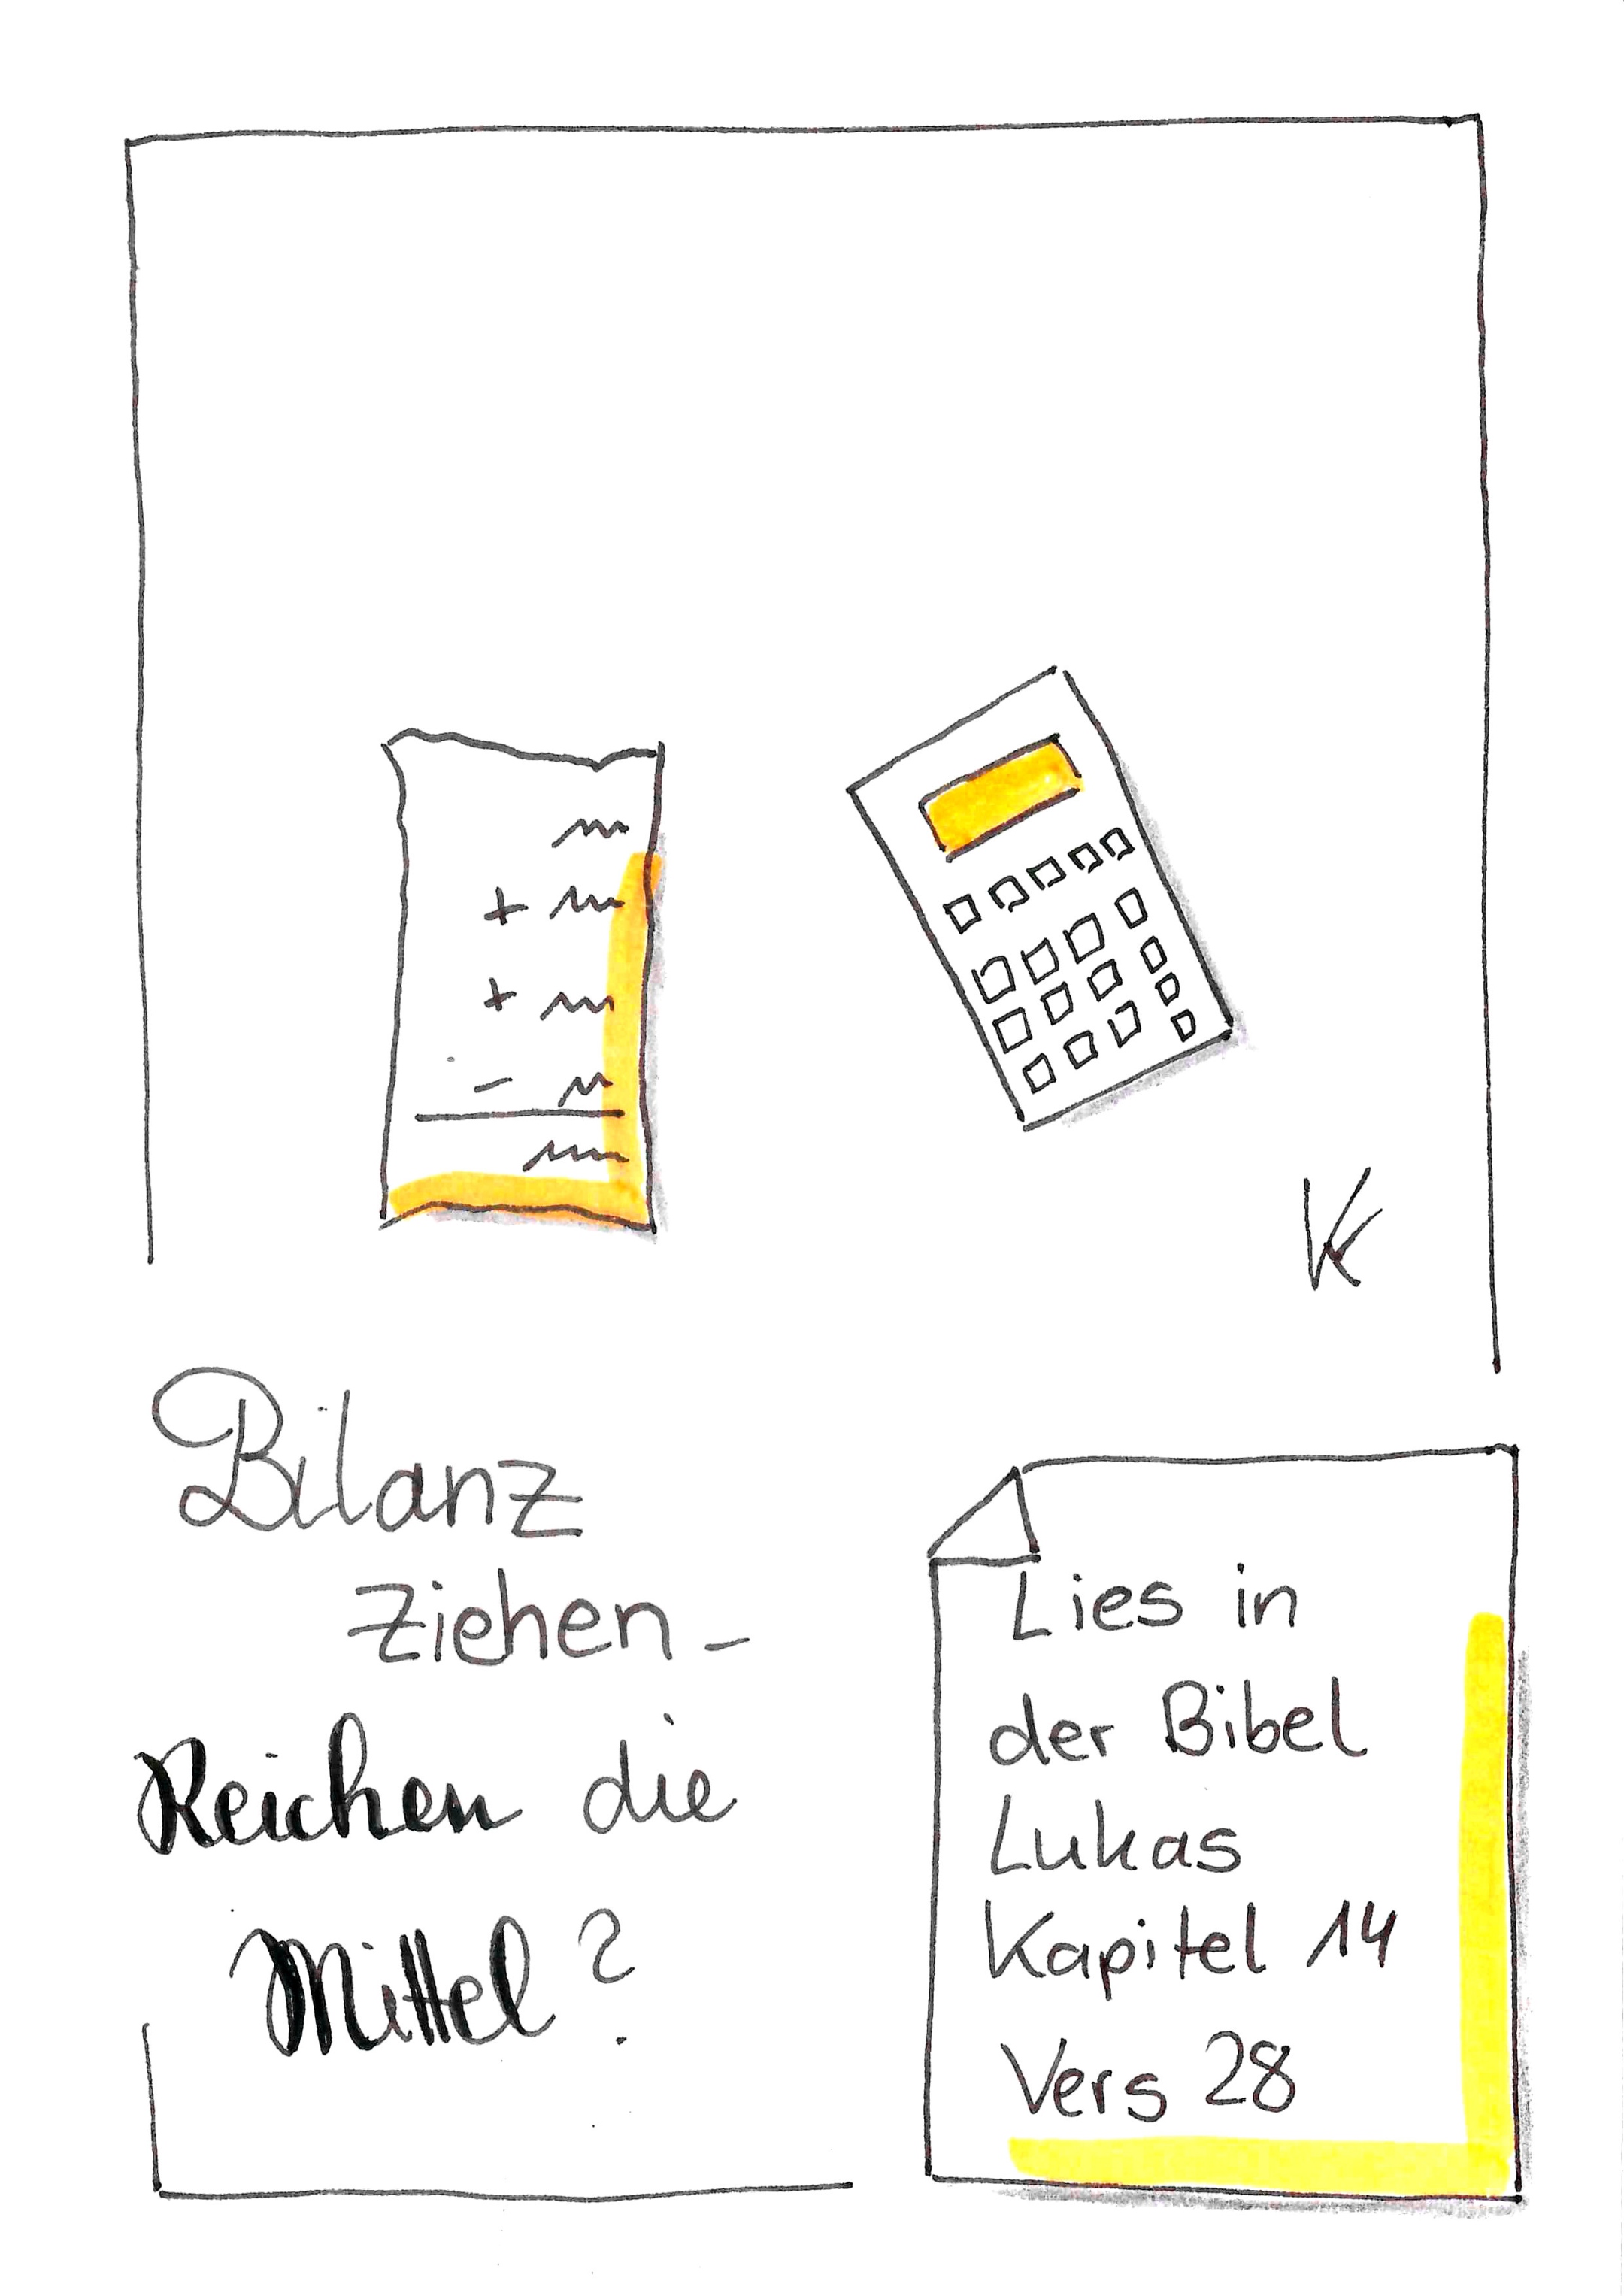 +
+
-
VK
Bilanz
ziehen -
Reichen die
Mittel?
Lies in
der Bibel
Lukas
Kapitel 14
Vers 28